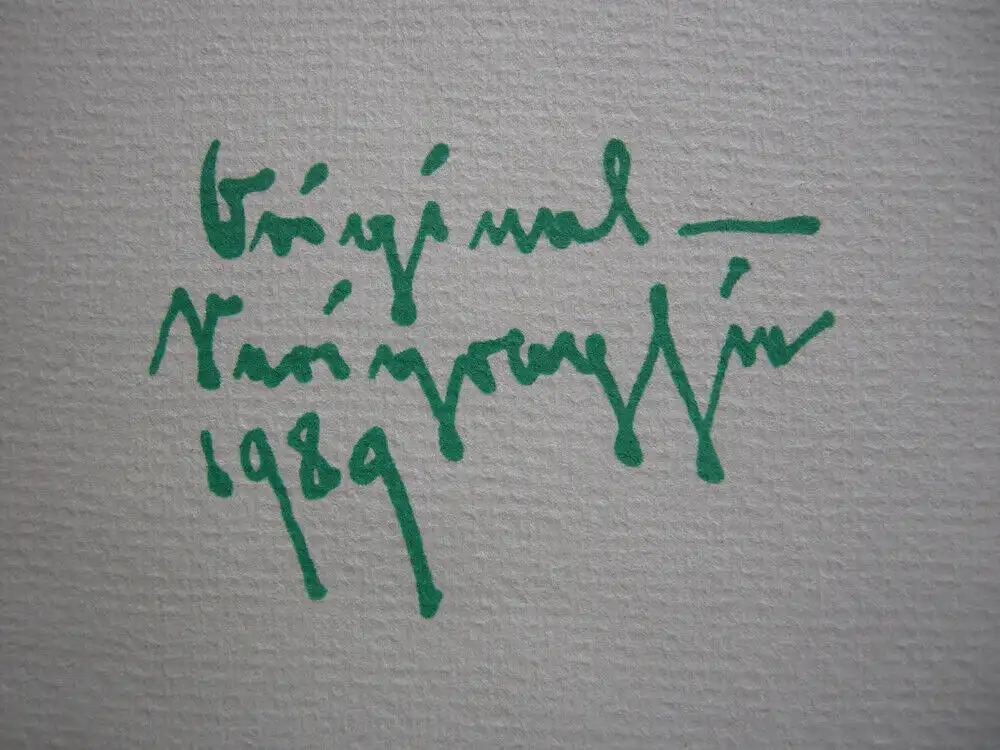 Original —
Serigraphie
1989